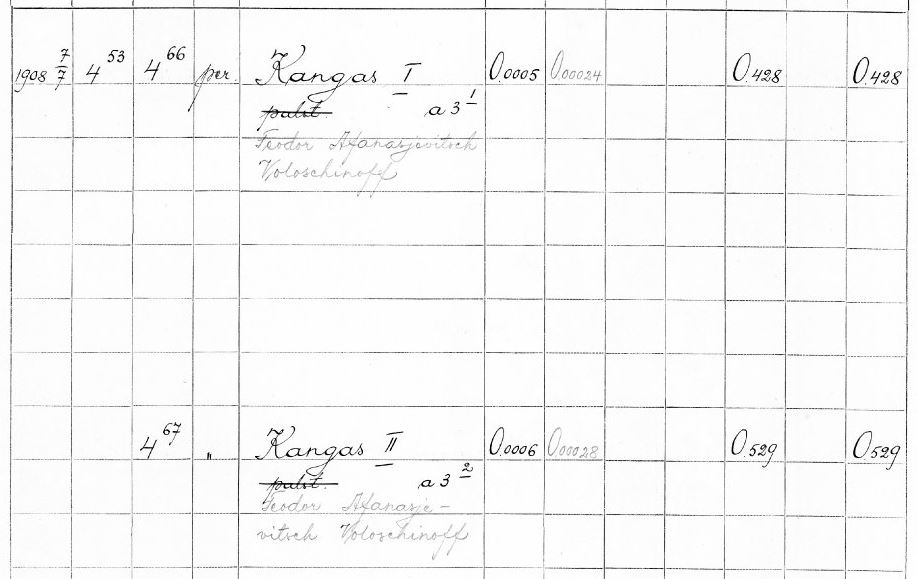 1908 7/7 4 53 4 66 per. Kangas I 0.0005 0.00024 0.428 0.428
palst. a 3 1
Feodor Afanasjevitsch
Voloschinoff
4 67 " Kangas II 0.0006 0.00028 0.529 0.529
palst. a 3 2
Feodor Afanasje-
vitsch Voloschinoff